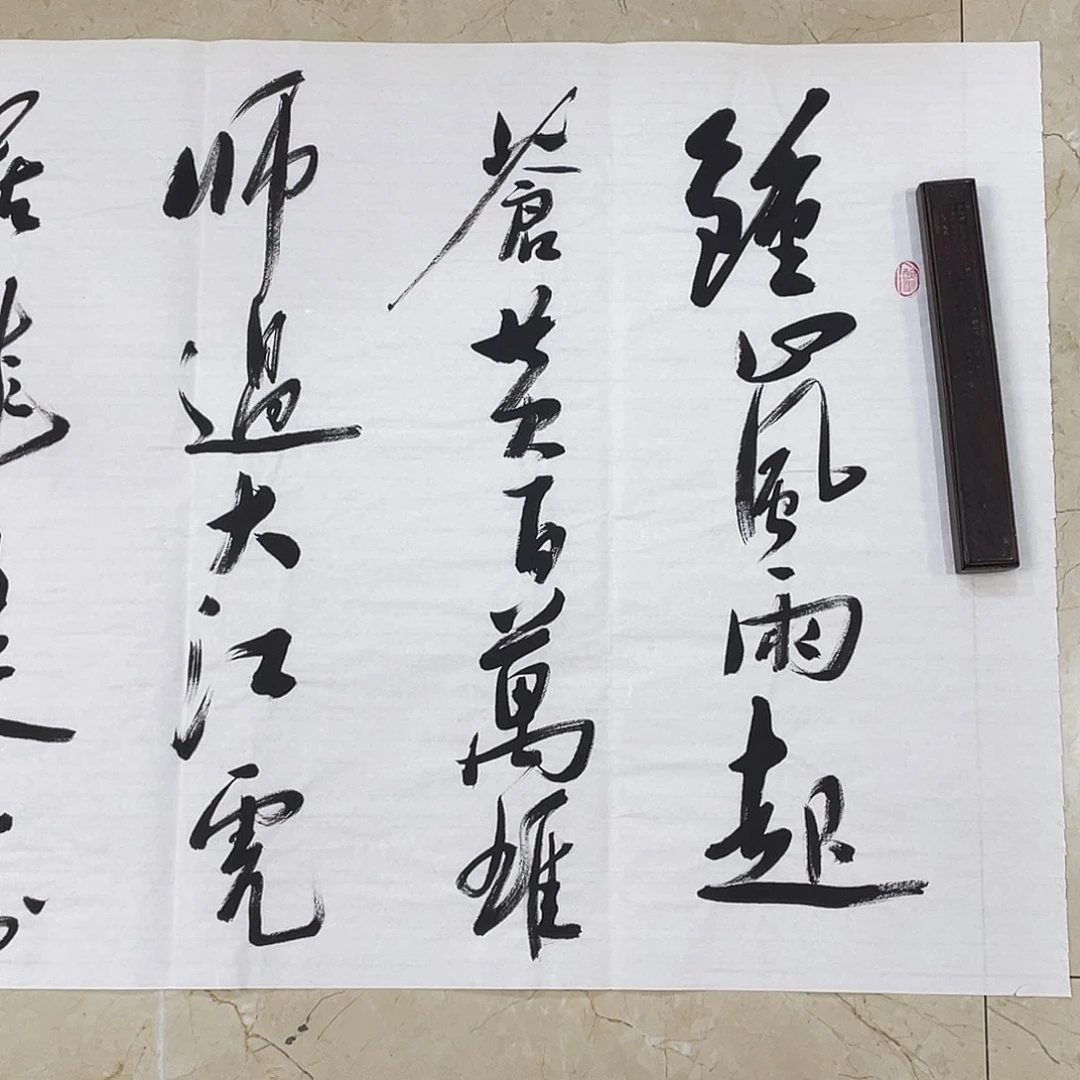 鍾山風雨起
蒼黄百萬雄
師過大江虎